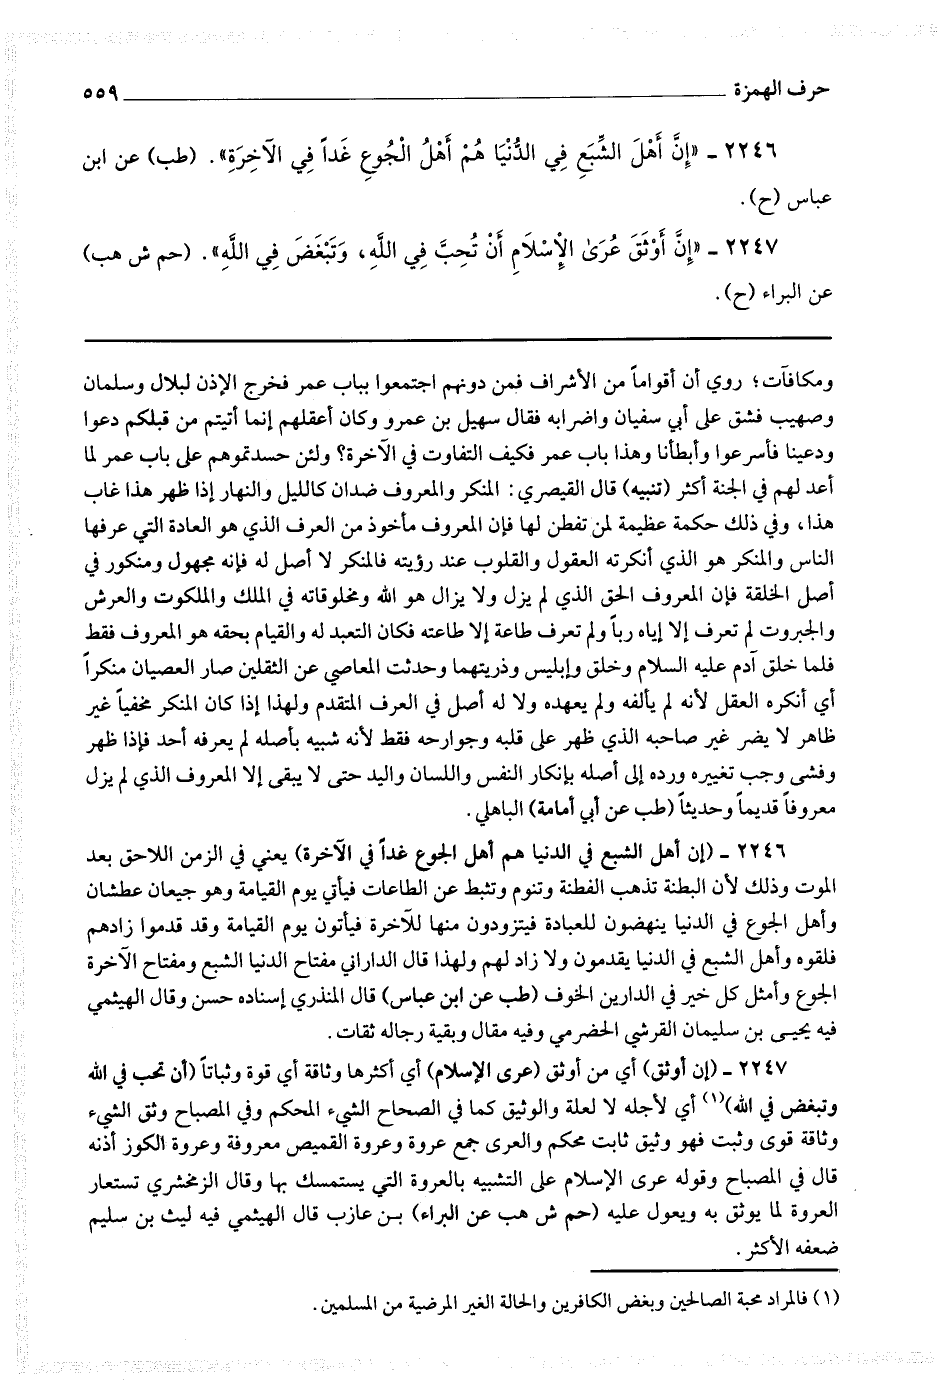 حرف الهمزة ٥٥٩
٢٢٤٦ ـ «إِنَّ أَهْلَ الشِّبَعِ فِي الدُّنْيَا هُمْ أَهْلُ الْجُوعِ غَداً فِي الآخِرَةِ». (طب) عن ابن
عباس (ح).
٢٢٤٧ ـ «إِنَّ أَوْثَقَ عُرَىٰ الإِسْلَامِ أَنْ تُحِبَّ فِي اللَّهِ، وَتَبْغَضَ فِي اللَّهِ». (حم ش هب)
عن البراء (ح).
ومكافآت؛ روي أن أقواماً من الأشراف فمن دونهم اجتمعوا بباب عمر فخرج الإذن لبلال وسلمان
وصهيب فشق على أبي سفيان واضرابه فقال سهيل بن عمرو وكان أعقلهم إنما أتيتم من قبلكم دعوا
ودعينا فأسرعوا وأبطأنا وهذا باب عمر فكيف التفاوت في الآخرة؟ ولئن حسدتموهم على باب عمر لما
أعد لهم في الجنة أكثر (تنبيه) قال القيصري: المنكر والمعروف ضدان كالليل والنهار إذا ظهر هذا غاب
هذا، وفي ذلك حكمة عظيمة لمن تفطن لها فإن المعروف مأخوذ من العرف الذي هو العادة التي عرفها
الناس والمنكر هو الذي أنكرته العقول والقلوب عند رؤيته فالمنكر لا أصل له فإنه مجهول ومنكور في
أصل الخلقة فإن المعروف الحق الذي لم يزل ولا يزال هو الله ومخلوقاته في الملك والملكوت والعرش
والجبروت لم تعرف إلا إياه رباً ولم تعرف طاعة إلا طاعته فكان التعبد له والقيام بحقه هو المعروف فقط
فلما خلق آدم عليه السلام وخلق وإبليس وذريتهما وحدثت المعاصي عن الثقلين صار العصيان منكراً
أي أنكره العقل لأنه لم يألفه ولم يعهده ولا له أصل في العرف المتقدم ولهذا إذا كان المنكر مخفياً غير
ظاهر لا يضر غير صاحبه الذي ظهر على قلبه وجوارحه فقط لأنه شبيه بأصله لم يعرفه أحد فإذا ظهر
وفشى وجب تغييره ورده إلى أصله بإنكار النفس واللسان واليد حتى لا يبقى إلا المعروف الذي لم يزل
معروفاً قديماً وحديثاً (طب عن أبي أمامة) الباهلي.
٢٢٤٦ ـ (إن أهل الشبع في الدنيا هم أهل الجوع غداً في الآخرة) يعني في الزمن اللاحق بعد
الموت وذلك لأن البطنة تذهب الفطنة وتنوم وتثبط عن الطاعات فيأتي يوم القيامة وهو جيعان عطشان
وأهل الجوع في الدنيا ينهضون للعبادة فيتزودون منها للآخرة فيأتون يوم القيامة وقد قدموا زادهم
فلقوه وأهل الشبع في الدنيا يقدمون ولا زاد لهم ولهذا قال الداراني مفتاح الدنيا الشبع ومفتاح الآخرة
الجوع وأمثل كل خير في الدارين الخوف (طب عن ابن عباس) قال المنذري إسناده حسن وقال الهيثمي
فيه يحيى بن سليمان القرشي الحضرمي وفيه مقال وبقية رجاله ثقات.
٢٢٤٧ ـ (إن أوثق) أي من أوثق (عرى الإسلام) أي أكثرها وثاقة أي قوة وثباتاً (أن تحب في الله
وتبغض في الله)(١) أي لأجله لا لعلة والوثيق كما في الصحاح الشيء المحكم وفي المصباح وثق الشيء
وثاقة قوى وثبت فهو وثيق ثابت محكم والعرى جمع عروة وعروة القميص معروفة وعروة الكوز أذنه
قال في المصباح وقوله عرى الإسلام على التشبيه بالعروة التي يستمسك بها وقال الزمخشري تستعار
العروة لما يوثق به ويعول عليه (حم ش هب عن البراء) بـن عازب قال الهيثمي فيه ليث بن سليم
ضعفه الأكثر.
(١) فالمراد محبة الصالحين وبغض الكافرين والحالة الغير المرضية من المسلمين.